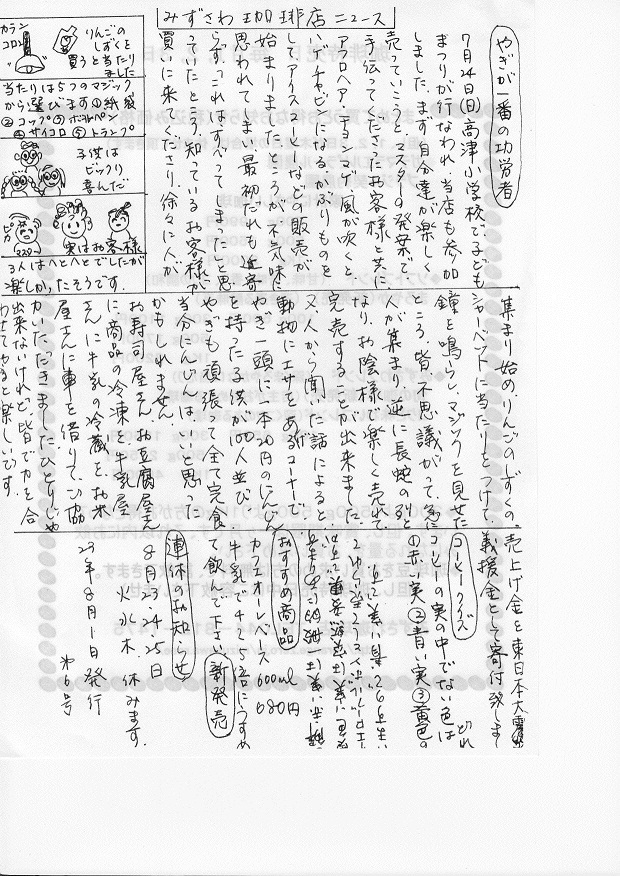 みずさわ珈琲店ニュース
やぎが一番の功労者
7月24日(日)高津小学校で子ども
まつりが行なわれ、当店も参加
しました。まず自分達が楽しく
売っていこうと、マスターの発案で、
手伝ってくださったお客様と共に
アフロヘア・チョンマゲ・風が吹くと
いがチャピンになる・かぶりものを
してアイスコーヒーなどの販売が
始まりました。ところが不気味に
思われてしまい最初だれも近寄
らず「これはすべってしまった」と思
っていたところ、知っているお客様が
買いに来てくださり、徐々に人が
カランコロン
りんごの
しずくを
買うと当たり
ました
当たりは5つのマジック
から選びます①紙袋
②コップ③ボールペン
④サイコロ⑤トランプ
子供は
ビックリ
喜んだ
ピカ
実はお客様
3人はヘトヘトでしたが
楽しかったそうです。
集まり始め、りんごのしずくの
シャーベットに当たりをつけて、
鐘を鳴らし、マジックを見せた
ところ、皆、不思議がって、急に
人が集まり、逆に長蛇の列と
なり、お陰様で楽しく売れて
完売することが出来ました。
又、人から聞いた話によると
動物にエサをあげるコーナーで、
やぎ一頭に1本20円のにんじん
を持った子供が100人並び
やぎも頑張って全て完食
当分にんじんは、いいと思った
かもしれません。
お寿司屋さん、お豆腐屋さん
に商品の冷凍を、牛乳屋
さんに牛乳の冷蔵を、お米
屋さんに車を借りて、ご協
力いただきました。ひとりじゃ
出来ないけれど、皆で力を合
わせてやると楽しいです。
売上げ金を東日本大震災
義援金として寄付致しまし
コーヒークイズ
コーヒーの実の中でない色はどれ
①赤い実②青い実③黄色の
おすすめ商品
カフェオーレベース 600ml 680円
牛乳で4〜5倍にうすめ
て飲んで下さい 新発売
連休のお知らせ
8月23・24・25日
火 水 木 休みます。
23年8月1日発行
第6号